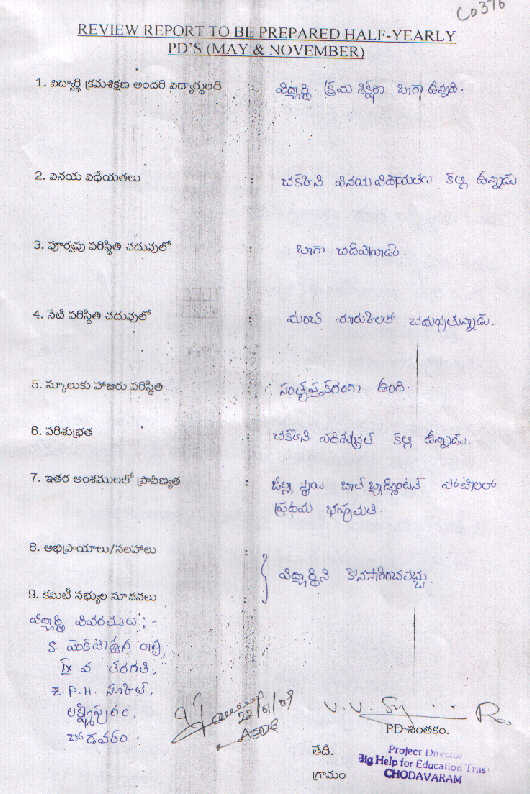 Co376
REVIEW REPORT TO BE PREPARED HALF-YEARLY
PD'S (MAY & NOVEMBER)
1. విద్యార్థి క్రమశిక్షణ అందరి విద్యార్థులతో : విద్యార్థి క్రమ శిక్షణ బాగా ఉన్నది.
2. వినయ విధేయతలు : చక్కని వినయ విధేయతలు కల్గి ఉన్నాడు
3. పూర్వపు పరిస్థితి చదువులో : బాగా చదివినాడు.
4. నేటి పరిస్థితి చదువులో : మంచి మార్కులతో చదువుతున్నాడు.
5. స్కూలుకు హాజరు పరిస్థితి : సంతృప్తికరంగా ఉంది.
6. పరిశుభ్రత : చక్కని పరిశుభ్రత కల్గి ఉన్నాడు.
7. ఇతర అంశములలో ప్రావీణ్యత : జిల్లా స్థాయి బాల్ బ్యాడ్మింటన్ పోటీలలో
ప్రథమ బహుమతి.
8. అభిప్రాయాలు/సలహాలు :
విద్యార్థిని కొనసాగించవచ్చు
9. కమిటీ సభ్యుల సూచనలు
విద్యార్థి వివరములు :-
IX వ తరగతి,
Z.P.H. స్కూల్,
లక్ష్మీపురం,
చోడవరం.
PD సంతకం.
తేది.
గ్రామం
Project Director
Big Help for Education Trust
CHODAVARAM